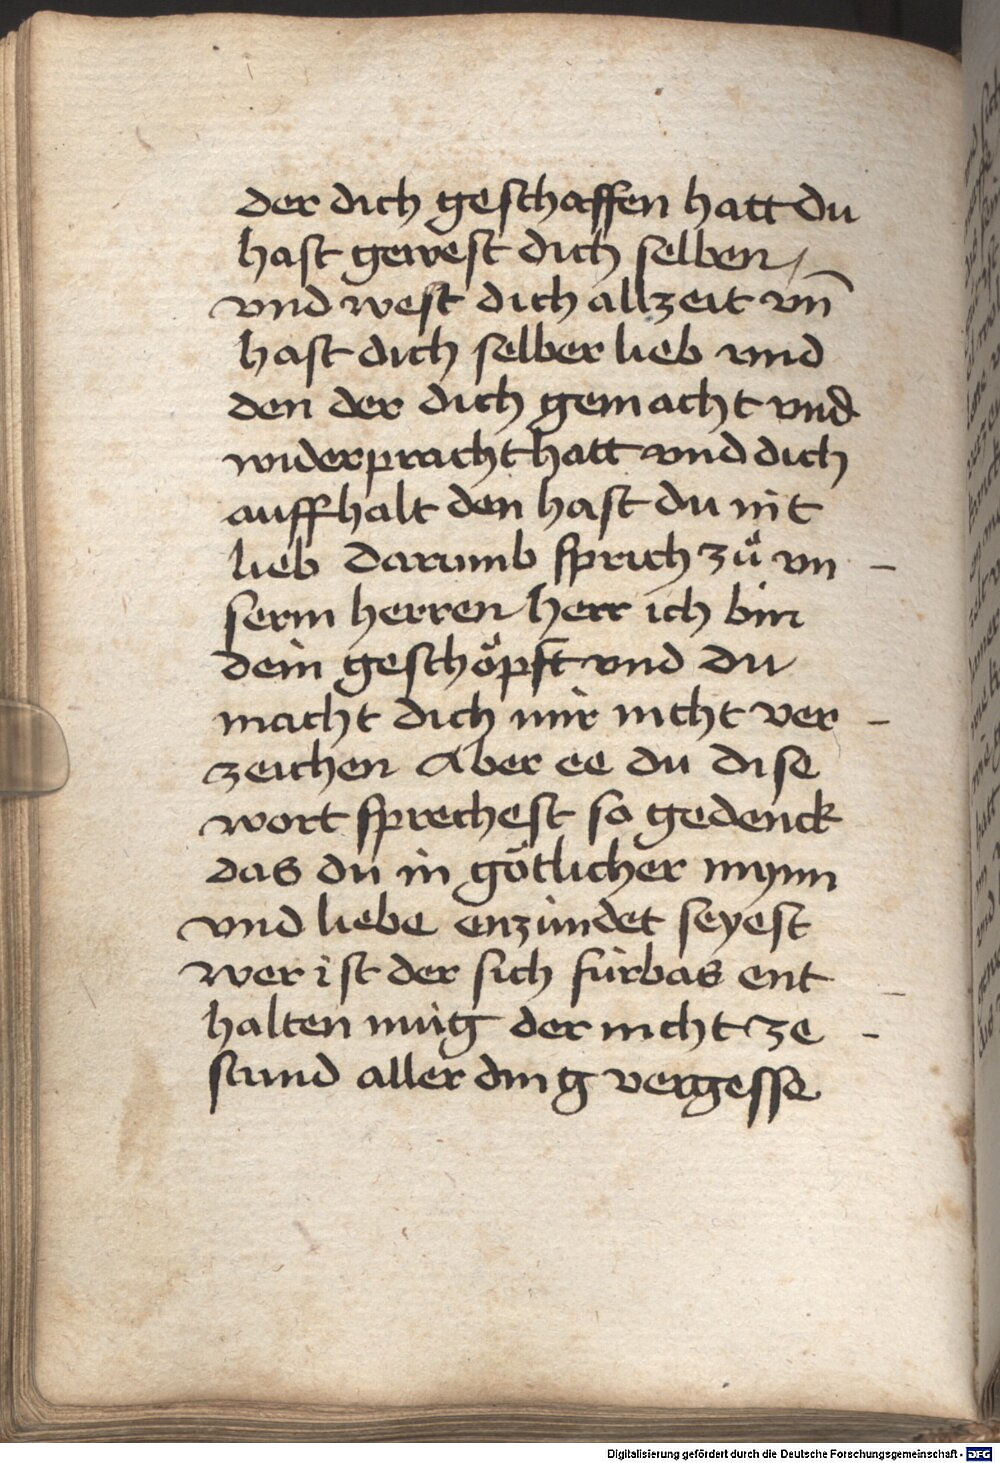 der dich geschaffen hatt du
hast gewest dich selben /
vnd west dich allzeit vn̄
hast dich selber lieb vnnd
den der dich gemacht vnd
widerpracht hatt vnd dich
auffhalt den hast du nit
lieb Darumb sprich zů vn -
serm herren herr ich bin
dein geschöpft vnd du
macht dich mir nicht ver -
zeichen Aber ee du dise
wort sprechest so gedenck
das du in götlicher mynn
vnd liebe enzündet seyest
wer ist der sich fürbas ent -
halten müg der nicht ze -
stund aller ding vergesse
Digitalisierung gefördert durch die Deutsche Forschungsgemeinschaft - DFG